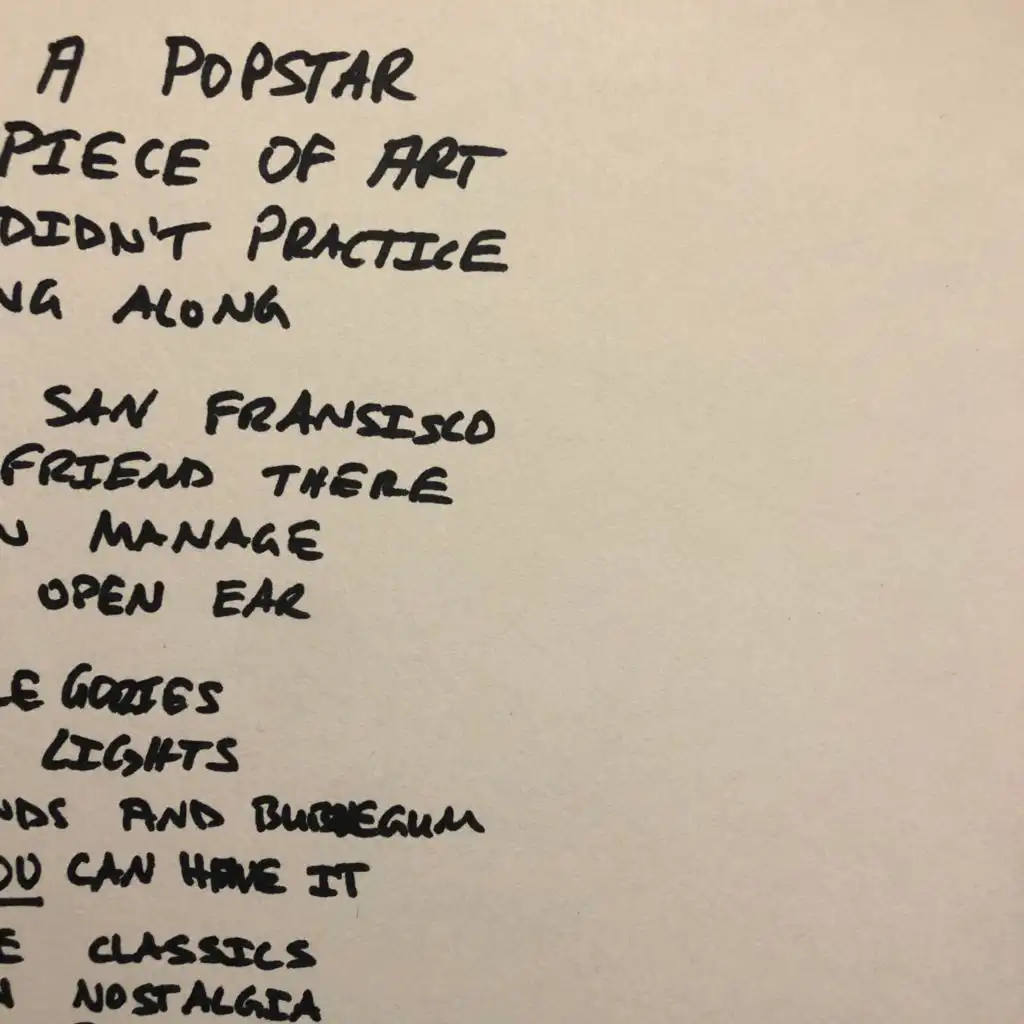 A POPSTAR
PIECE OF ART
DIDN'T PRACTICE
NG ALONG
SAN FRANSISCO
FRIEND THERE
N MANAGE
OPEN EAR
LEGORIES
LIGHTS
NDS AND BUBBLEGUM
OU CAN HAVE IT
E CLASSICS
NOSTALGIA